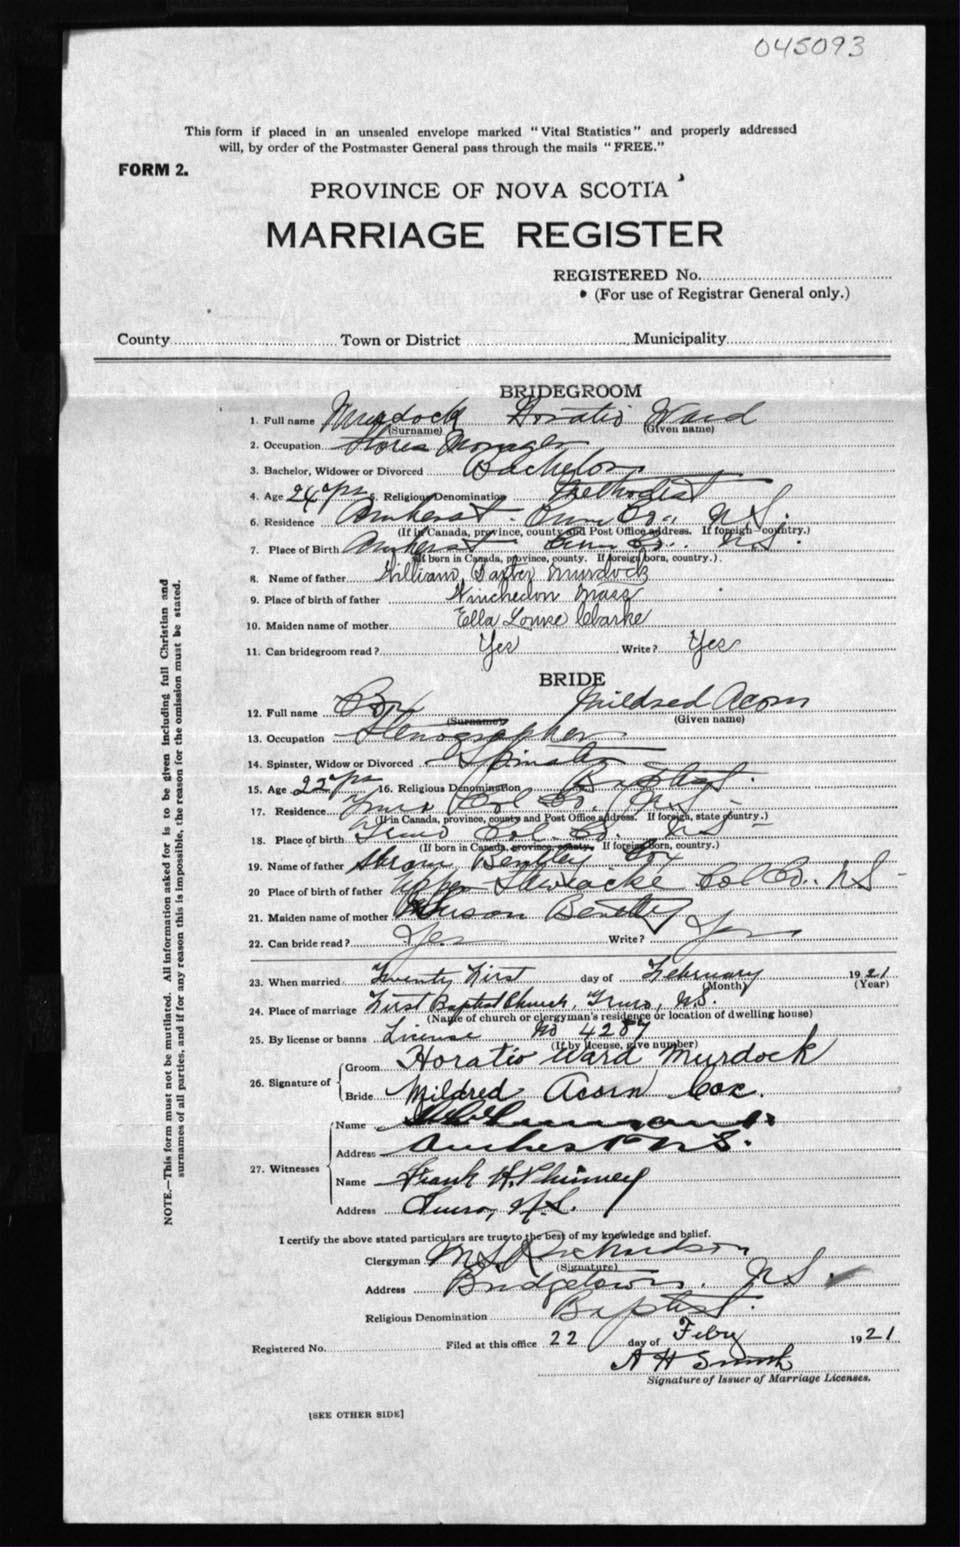 045093
This form if placed in an unsealed envelope marked "Vital Statistics" and properly addressed
will, by order of the Postmaster General pass through the mails "FREE."
FORM 2.
PROVINCE OF NOVA SCOTIA
MARRIAGE REGISTER
REGISTERED No.
(For use of Registrar General only.)
County Town or District Municipality
BRIDEGROOM
1. Full name Murdock Horatio Ward
(Surname) (Given name)
2. Occupation Stores Manager
3. Bachelor, Widower or Divorced Bachelor
4. Age 24 yrs 5. Religious Denomination Methodist
6. Residence Amherst Cum Co., N.S.
(If in Canada, province, county and Post Office address. If foreign country.)
7. Place of Birth Amherst Cum Co. N.S.
(If born in Canada, province, county. If foreign born, country.)
8. Name of father William Murdock
9. Place of birth of father Winchedon Mass
10. Maiden name of mother Ella Louise Clarke
11. Can bridegroom read? Yes Write? Yes
BRIDE
12. Full name Cox Mildred Acorn
(Surname) (Given name)
13. Occupation Stenographer
14. Spinster, Widow or Divorced Spinster
15. Age 22 yrs 16. Religious Denomination Baptist.
17. Residence Truro Col Co. N.S.
(If in Canada, province, county and Post Office address. If foreign, state country.)
18. Place of birth Truro Col. Co. N.S.
(If born in Canada, province, county. If foreign born, country.)
19. Name of father Bentley Cox
20 Place of birth of father Upper Stewiacke Col Co. N.S.
21. Maiden name of mother
22. Can bride read? Yes Write? Yes
23. When married Twenty First day of February 1921
(Month) (Year)
24. Place of marriage First Baptist Church, Truro, N.S.
(Name of church or clergyman's residence or location of dwelling house)
25. By license or banns License No 4287
(If by license, give number)
26. Signature of
Groom Horatio Ward Murdock
Bride Mildred Acorn Cox.
27. Witnesses
Name
Address Amherst N.S.
Name Frank H. Phinney
Address Truro, N.S.
I certify the above stated particulars are true to the best of my knowledge and belief.
Clergyman M S Richardson
(Signature)
Address Bridgetown. N.S.
Religious Denomination Baptist.
Registered No. Filed at this office 22 day of Feby 1921
A H Smith
Signature of Issuer of Marriage Licenses.
[SEE OTHER SIDE]
NOTE.—This form must not be mutilated. All information asked for is to be given including full Christian and
surnames of all parties, and if for any reason this is impossible, the reason for the omission must be stated.